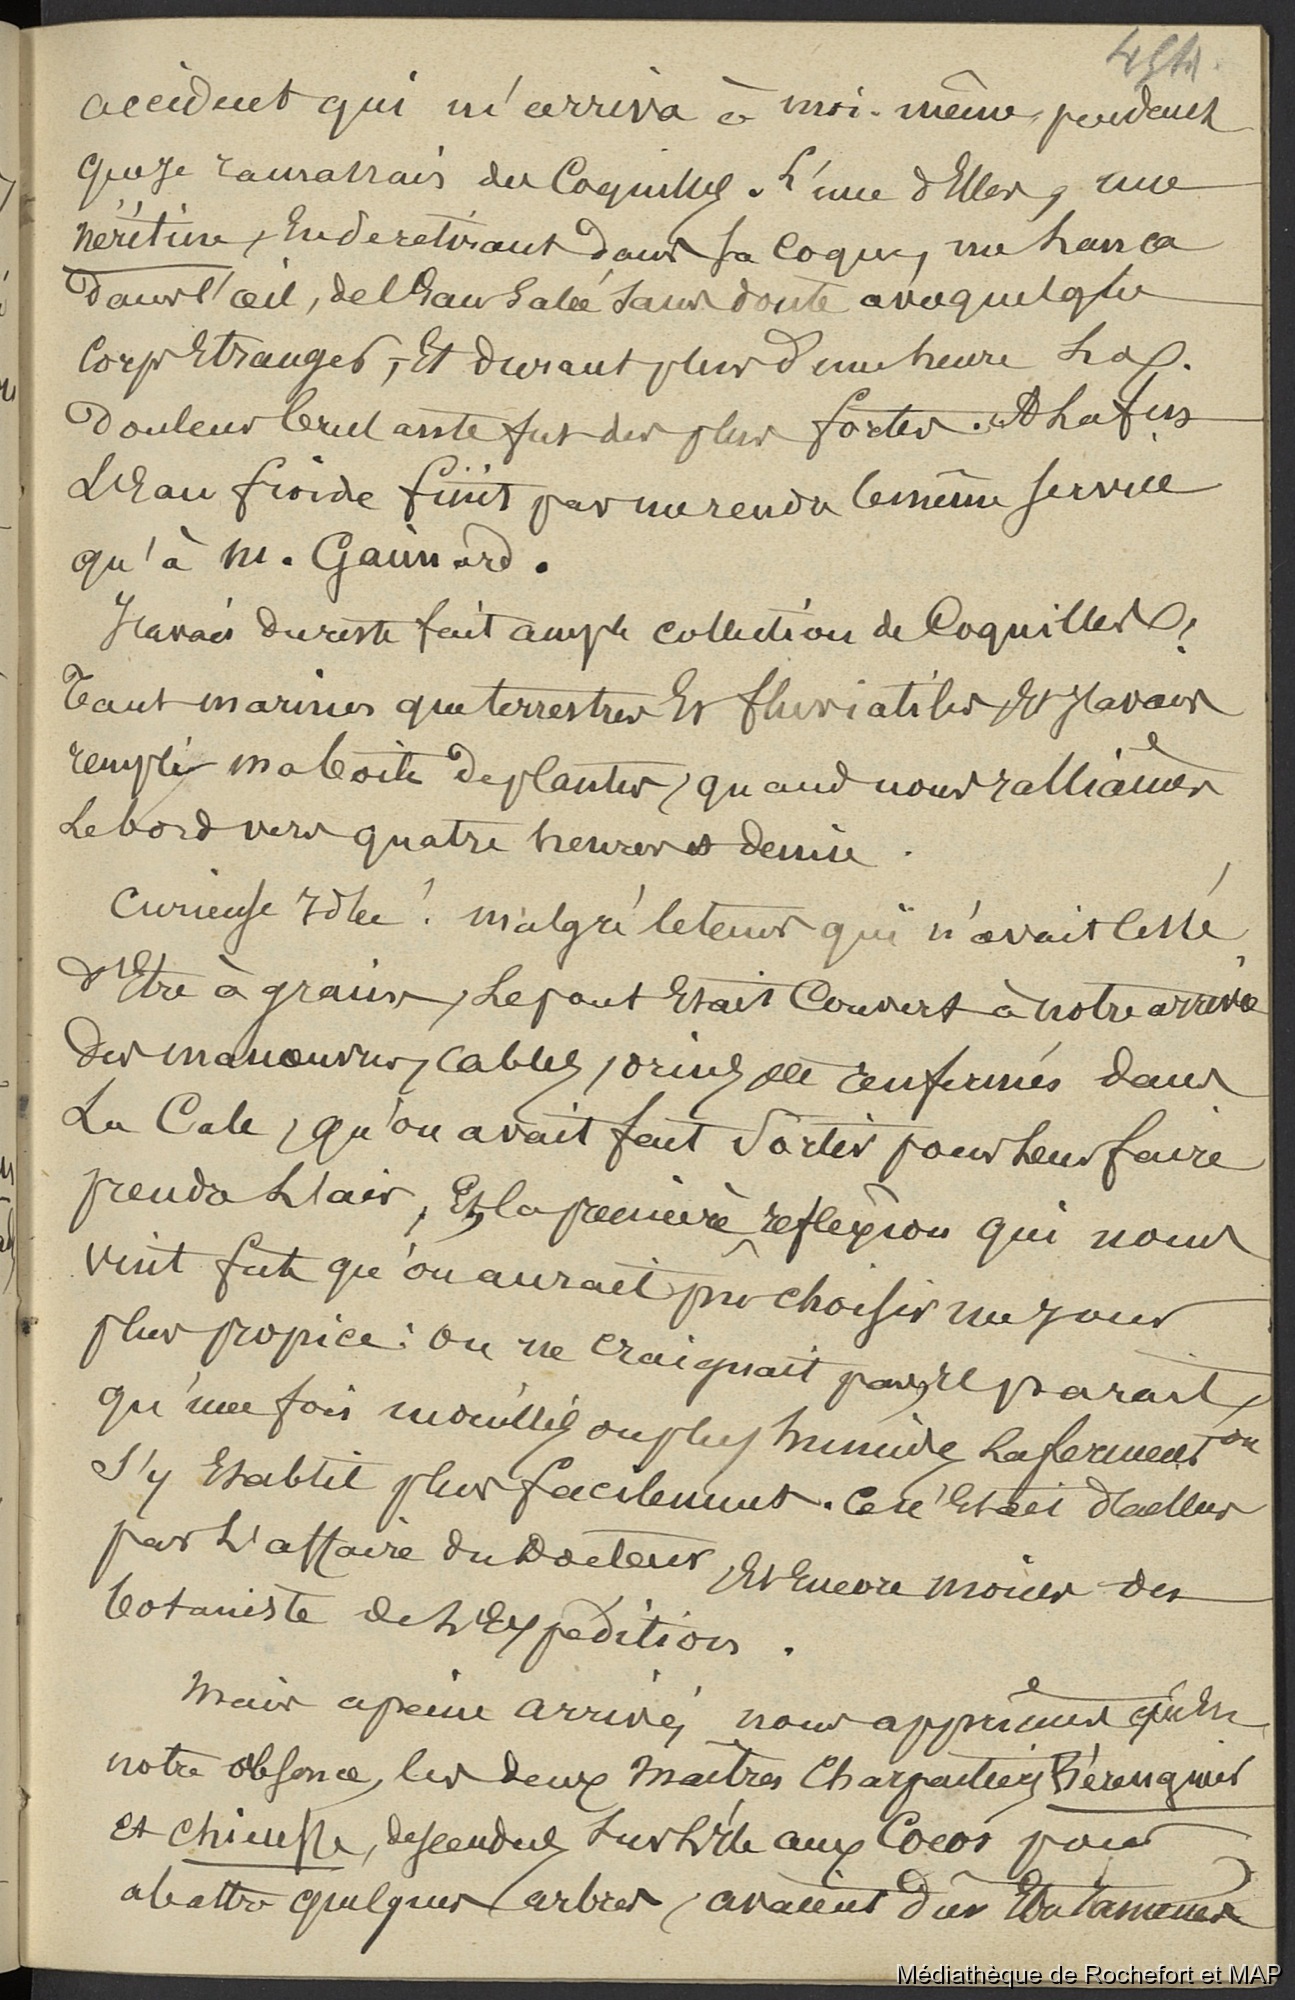 accident qui m'arriva à moi-même, pendant
que je ramassais des Coquilles. L'une d'Elles, une
néritine, En se retirant dans sa coque, me lança
dans l'œil, de l'Eau Salée sans doute avec quelque
Corps Etranger, Et durant plus d'une heure la
Douleur brulante fut des plus fortes. A la fin
L'Eau froide finit par me rendre le même service
qu'à M. Gaimard.
J'avais du reste fait ample collection de Coquilles,
Tant marines que terrestres Et fluviatiles, Et j'avais
rempli ma boite de plantes, quand nous ralliâmes
Le bord vers quatre heures et demie.
Curieuse Idée! malgré le tems qui n'avait cessé
d'Etre à grains, Le pont Etait Couvert à notre arrivée
des manœuvres, cables, orins etc renfermés dans
La Cale, qu'on avait fait Sortir pour leur faire
prendre L'air, Et la première reflexion qui nous
vint fut qu'on aurait pû choisir un jour
plus propice: on ne craignait pas, Il parait,
qu'une fois mouillés ou plus humides La ferment on
s'y Etablit plus facilement. Ce n'Etait d'ailleurs
pas L'affaire du Docteur, Et Encore moins des
botaniste de L'Expédition.
Mais apeine arrivés, nous apprîmes qu'En
notre absence, les deux Maîtres Charpentiers Bérenguier
et Chieusse, descendus sur L'île aux Cocos pour
abattre quelques arbres, avaient dûs Etre ramenés
Médiathèque de Rochefort et MAP